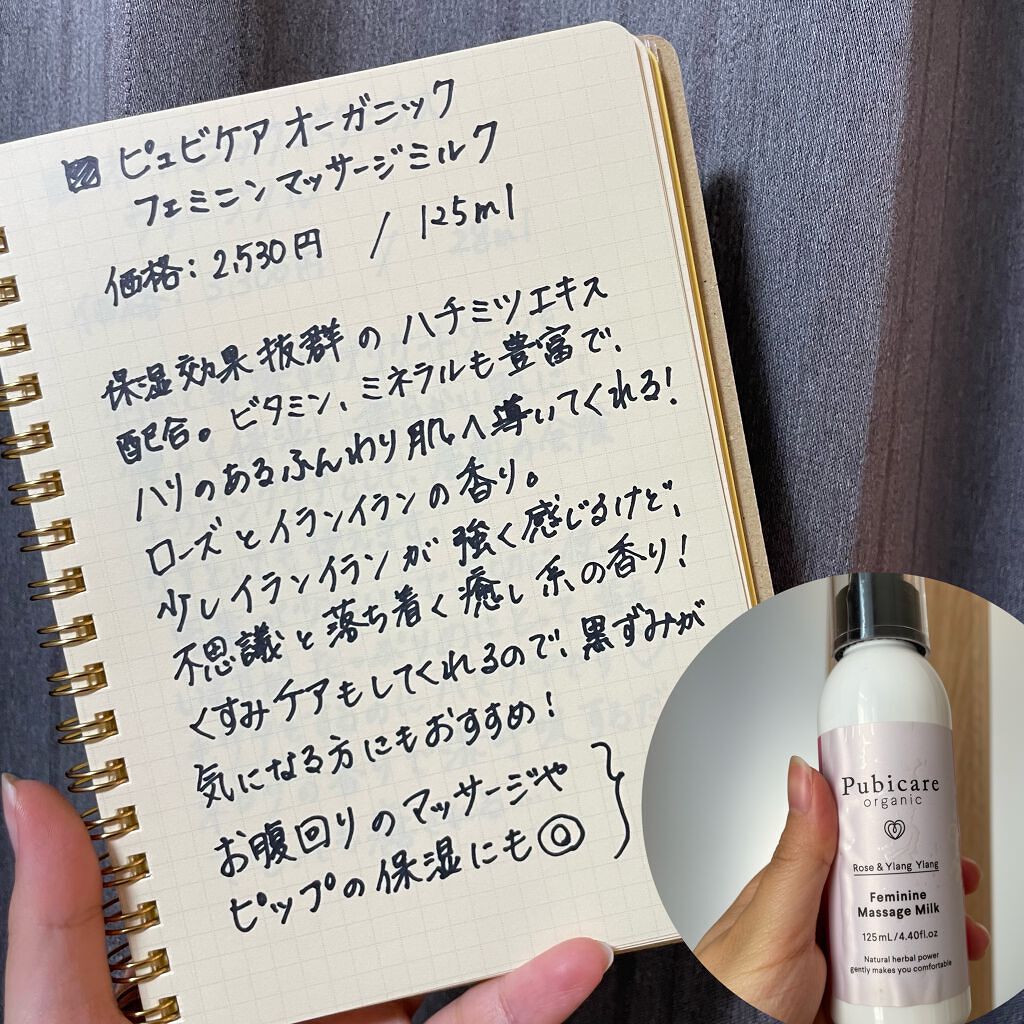 ピュビケアオーガニック
フェミニンマッサージミルク
価格:2,530円 / 125ml
保湿効果抜群のハチミツエキス
配合。ビタミン、ミネラルも豊富で、
ハリのあるふんわり肌へ導いてくれる!
ローズとイランイランの香り。
少しイランイランが強く感じるけど、
不思議と落ち着く癒し系の香り!
くすみケアもしてくれるので、黒ずみが
気になる方にもおすすめ!
お腹回りのマッサージや
ピップの保湿にも◎
Pubicare
organic
Rose & Ylang Ylang
Feminine
Massage Milk
125mL/4.40fl.oz
Natural herbal power
gently makes you comfortable